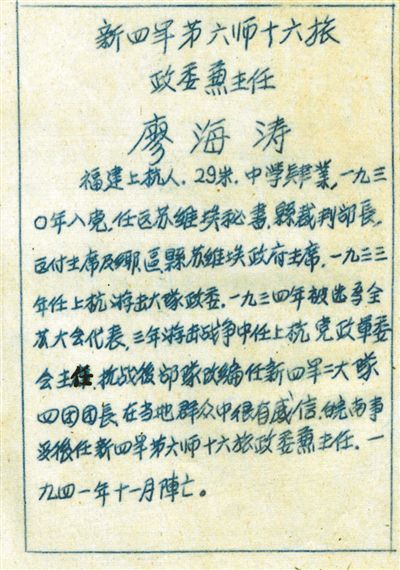 新四军第六师十六旅
政委兼主任
廖海涛
福建上杭人.29岁.中学毕業.一九三
〇年入党.任区苏維埃秘書.縣裁判部長.
区付主席及鄉.區縣苏維埃政府主席.一九三三
年任上杭游击大隊政委.一九三四年被选為全
苏大会代表.三年游击战争中任上杭党政軍委
会主任.抗战後部隊改編任新四军二大隊
四团团長.在当地群众中很有威信.皖南事
变後任新四军第六师十六旅政委兼主任.一
九四一年十一月陣亡。